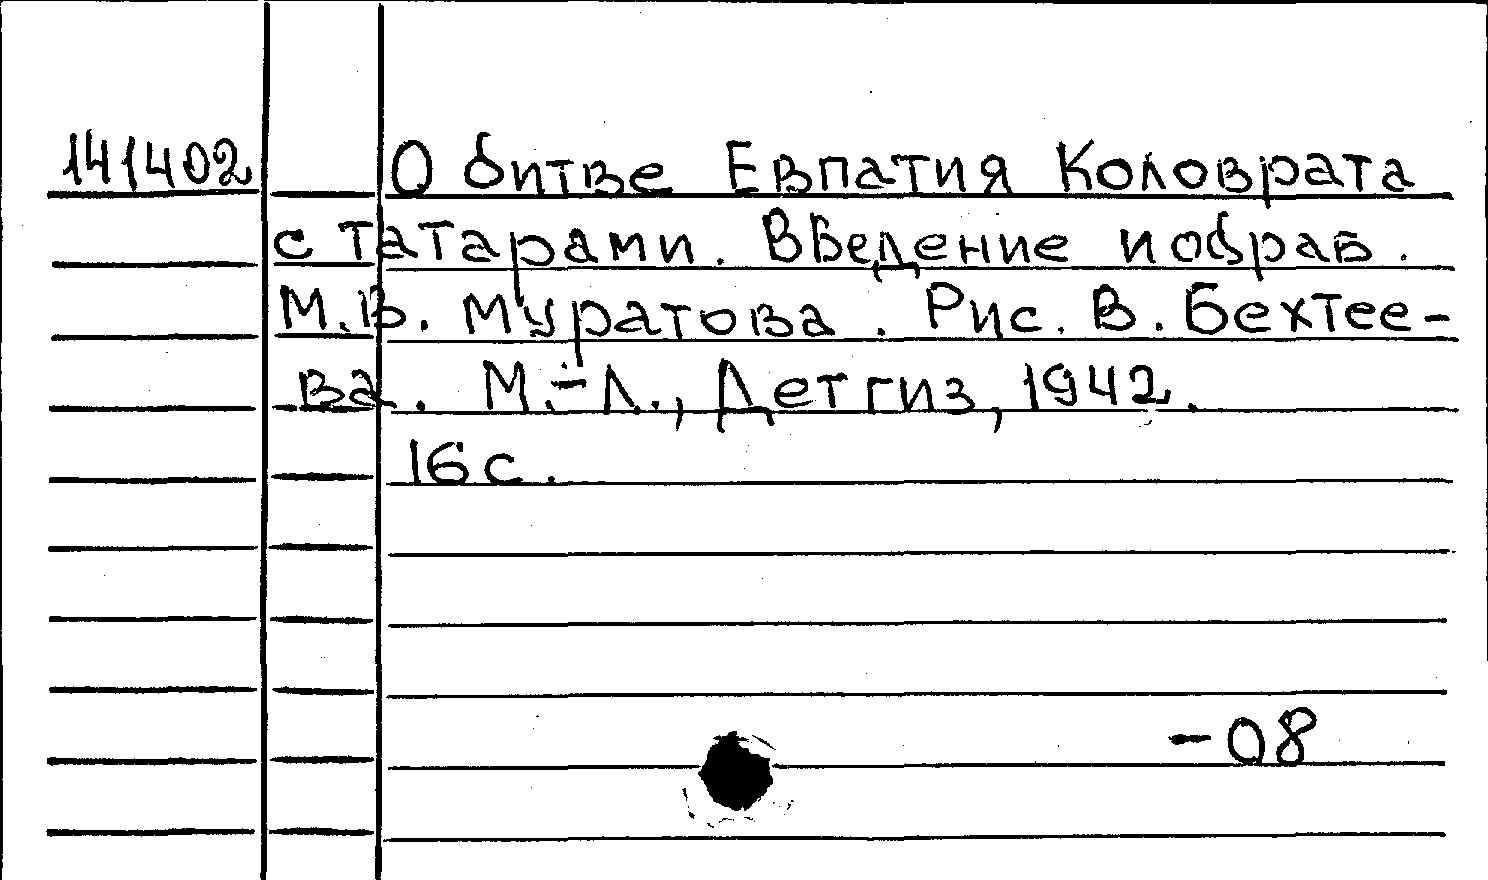 141402 О битве Евпатия Коловрата
с татарами. Введение и обраб.
М.В. Муратова. Рис. В. Бехтее-
ва. М.-Л., Детгиз, 1942.
16 с.
-08